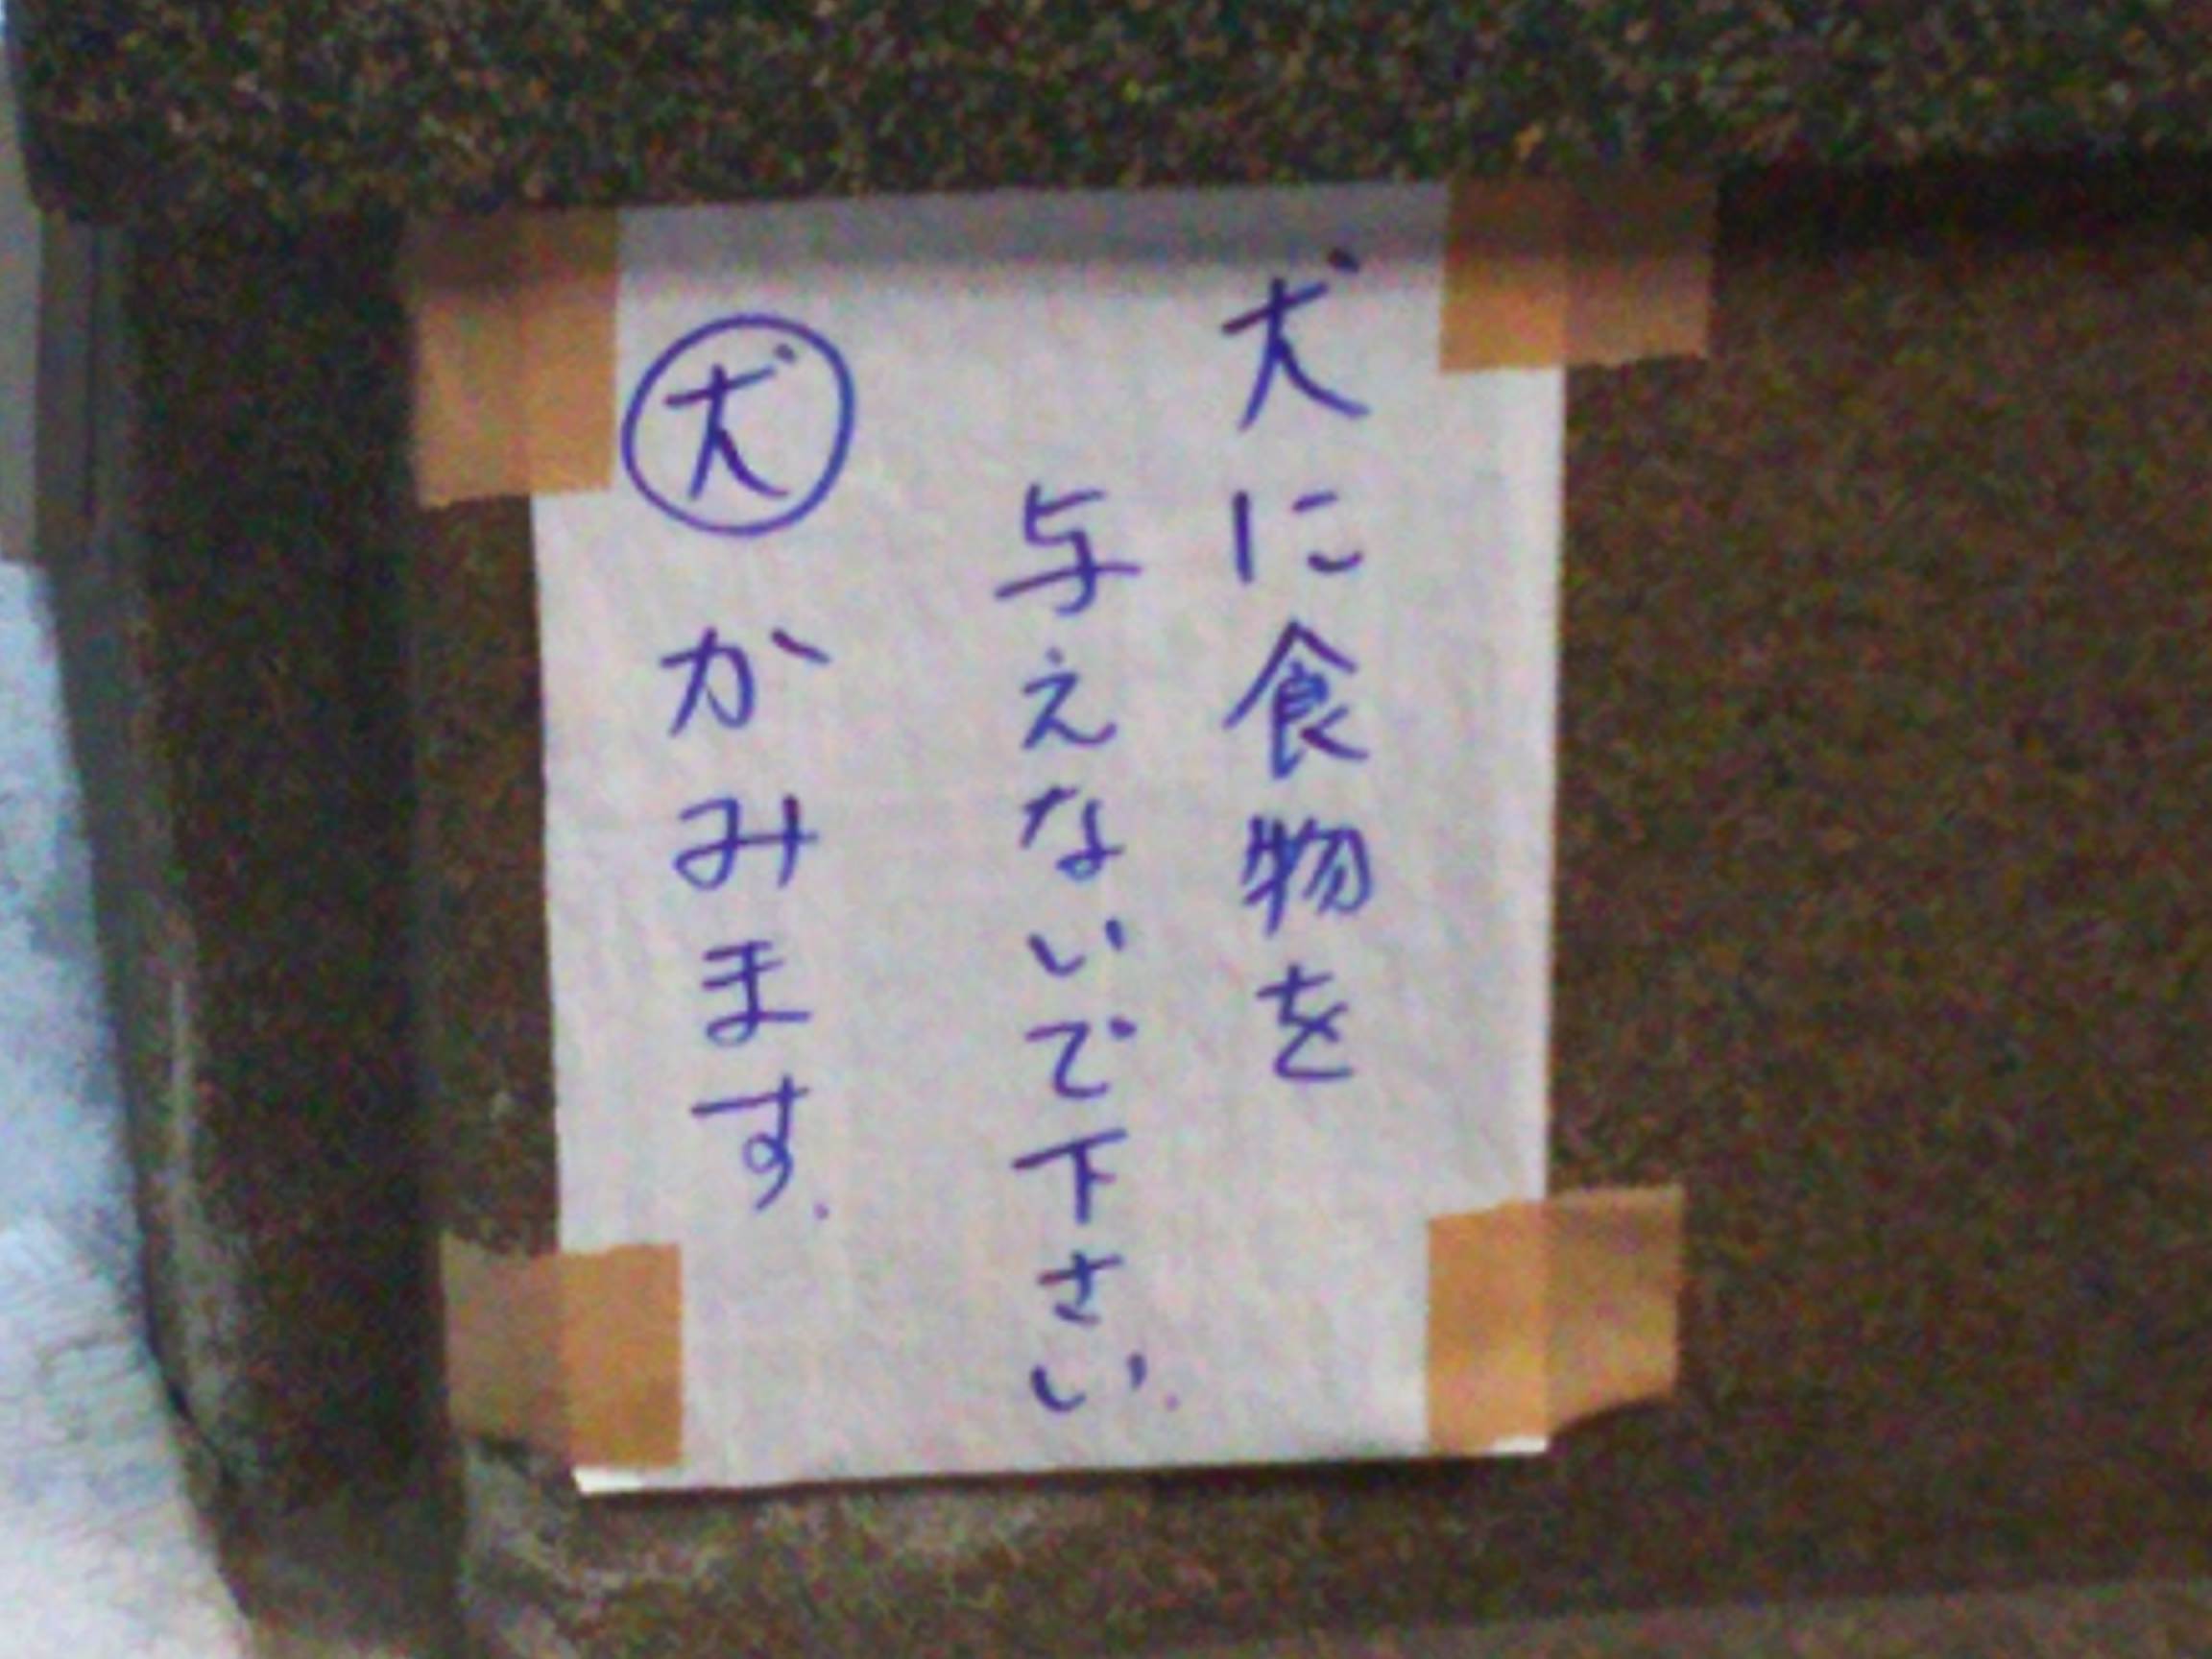 犬に食物を
与えないで下さい.
犬かみます.